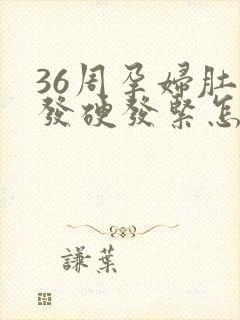 36周孕婦肚
發硬發緊怎
謙葉